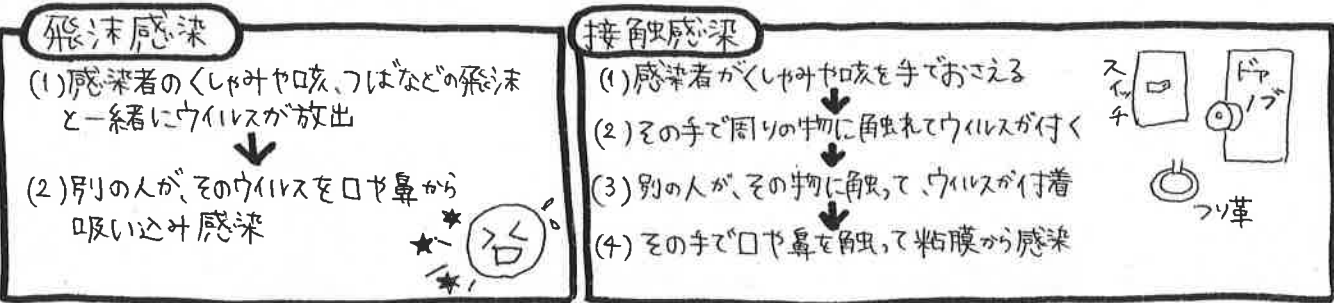 飛沫感染
(1)感染者のくしゃみや咳、つばなどの飛沫
と一緒にウイルスが放出
(2)別の人が、そのウイルスを口や鼻から
吸い込み感染
接触感染
(1)感染者がくしゃみや咳を手でおさえる
(2)その手で周りの物に触れてウイルスが付く
(3)別の人が、その物に触って、ウイルスが付着
(4)その手で口や鼻を触って粘膜から感染
スイッチ
ドア
ノブ
つり革